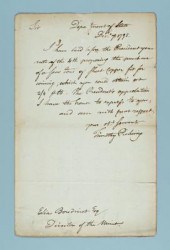 Sir Department of State
Feby. 1795
I have laid before the President your
note of the 6th proposing the purchase
of a few tons of sheet copper for
coining, which you could obtain at
2/2 ℔. The President's approbation
I have the honor to express to you,
and am with great respect
your obt Servant
Timothy Pickering
Elias Boudinot Esq
Director of the Mint